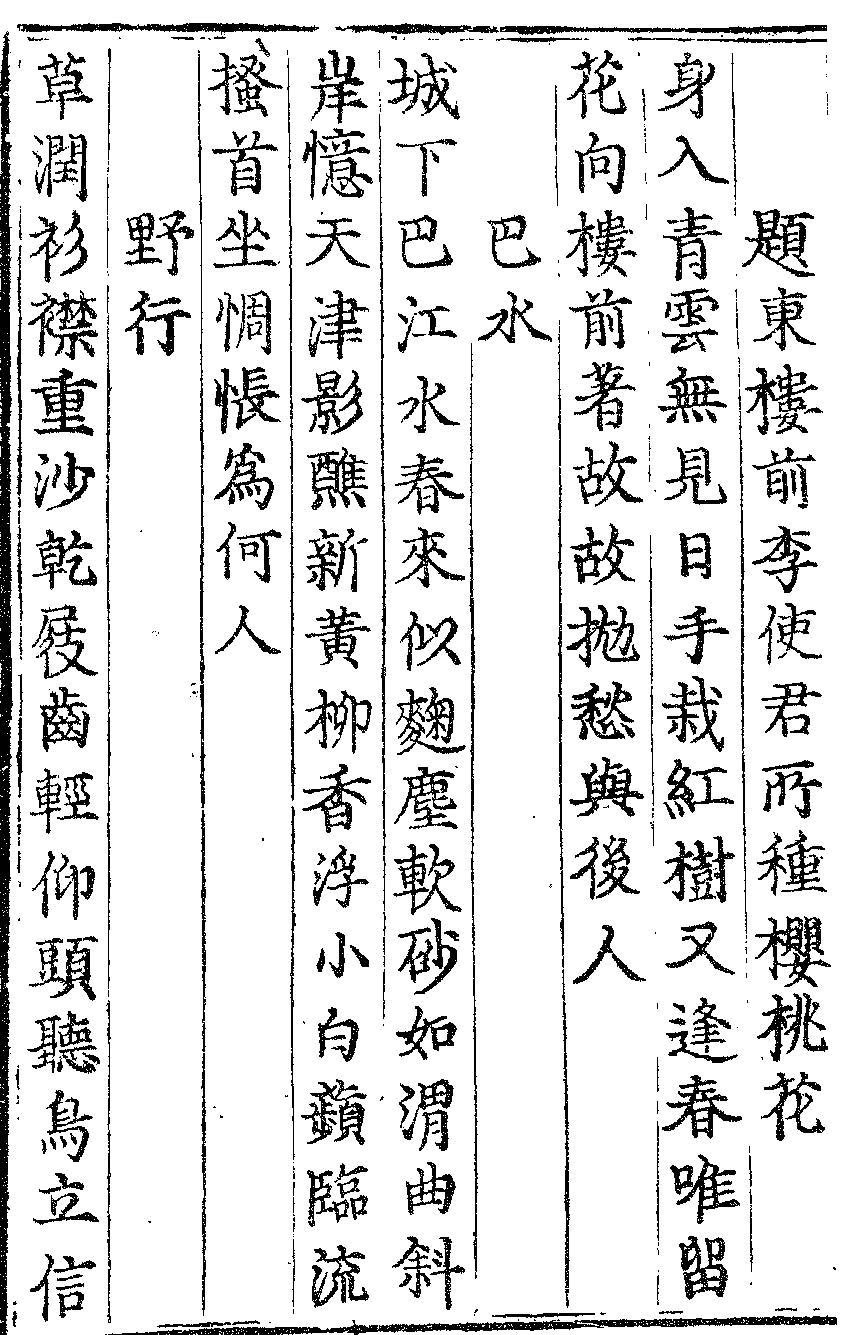 題東樓前李使君所種櫻桃花
身入青雲無見日手栽紅樹又逢春唯留
花向樓前著故故抛愁與後人
巴水
城下巴江水春來似麴塵軟砂如渭曲斜
岸憶天津影蘸新黃柳香浮小白蘋臨流
搔首坐惆悵為何人
野行
草潤衫襟重沙乾屐齒輕仰頭聽鳥立信